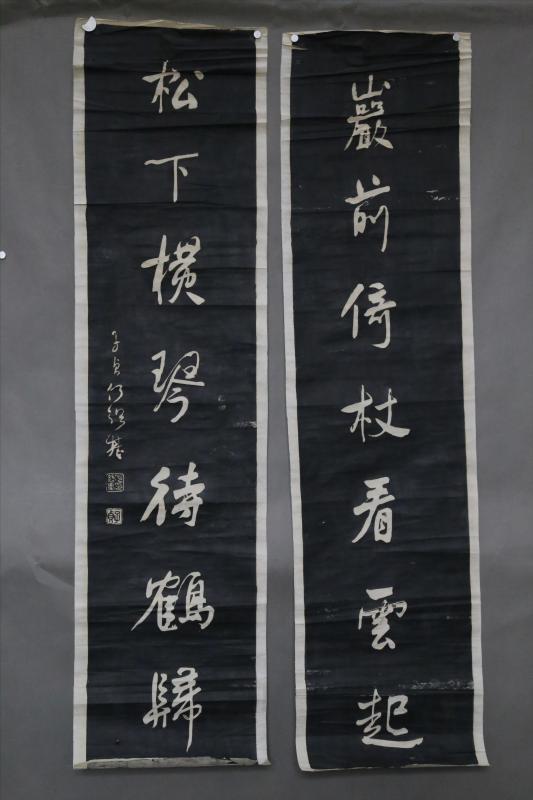 巖前倚杖看雲起
松下横琴待鶴歸
子貞何紹基